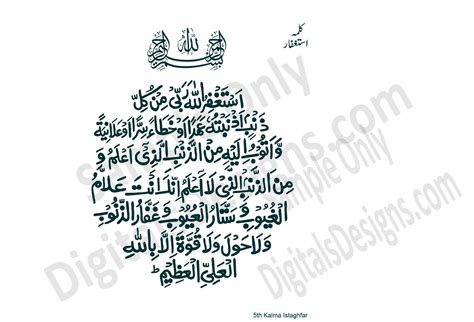 کلمہ
استغفار
بسم الله الرحمن الرحیم
اَسْتَغْفِرُ اللهَ رَبِّیْ مِنْ کُلِّ
ذَنْبٍ اَذْنَبْتُهٗ عَمَدًا اَوْ خَطَاءً سِرًّا اَوْ عَلَانِیَةً
وَّ اَتُوْبُ اِلَیْهِ مِنَ الذَّنْبِ الَّذِیْ اَعْلَمُ وَ
مِنَ الذَّنْبِ الَّذِیْ لَا اَعْلَمُ اِنَّكَ اَنْتَ عَلَّامُ
الْغُیُوْبِ وَ سَتَّارُ الْعُیُوْبِ وَ غَفَّارُ الذُّنُوْبِ
وَلَا حَوْلَ وَلَا قُوَّةَ اِلَّا بِاللهِ
الْعَلِیِّ الْعَظِیْمِ ؕ
5th Kalma Istaghfar
DigitalsDesigns.com
Sample Only
DigitalsDesigns.com